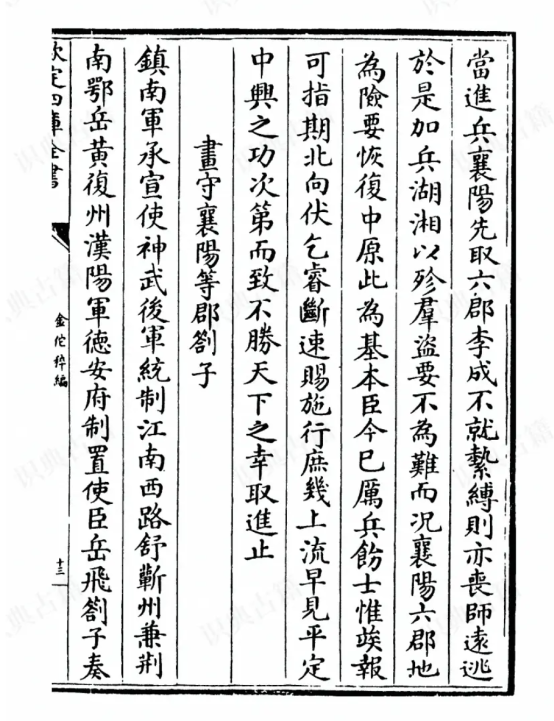 當進兵襄陽先取六郡李成不就縶縛則亦喪師遠逃
於是加兵湖湘以殄羣盜要不為難而况襄陽六郡地
為險要恢復中原此為基本臣今已厲兵飭士惟竢報
可指期北向伏乞睿斷速賜施行庶幾上流早見平定
中興之功次第而致不勝天下之幸取進止
畫守襄陽等郡劄子
鎮南軍承宣使神武後軍統制江南西路舒蘄州兼荆
南鄂岳黃復州漢陽軍德安府制置使臣岳飛劄子奏
欽定四庫全書
金佗稡編
十三
识典古籍